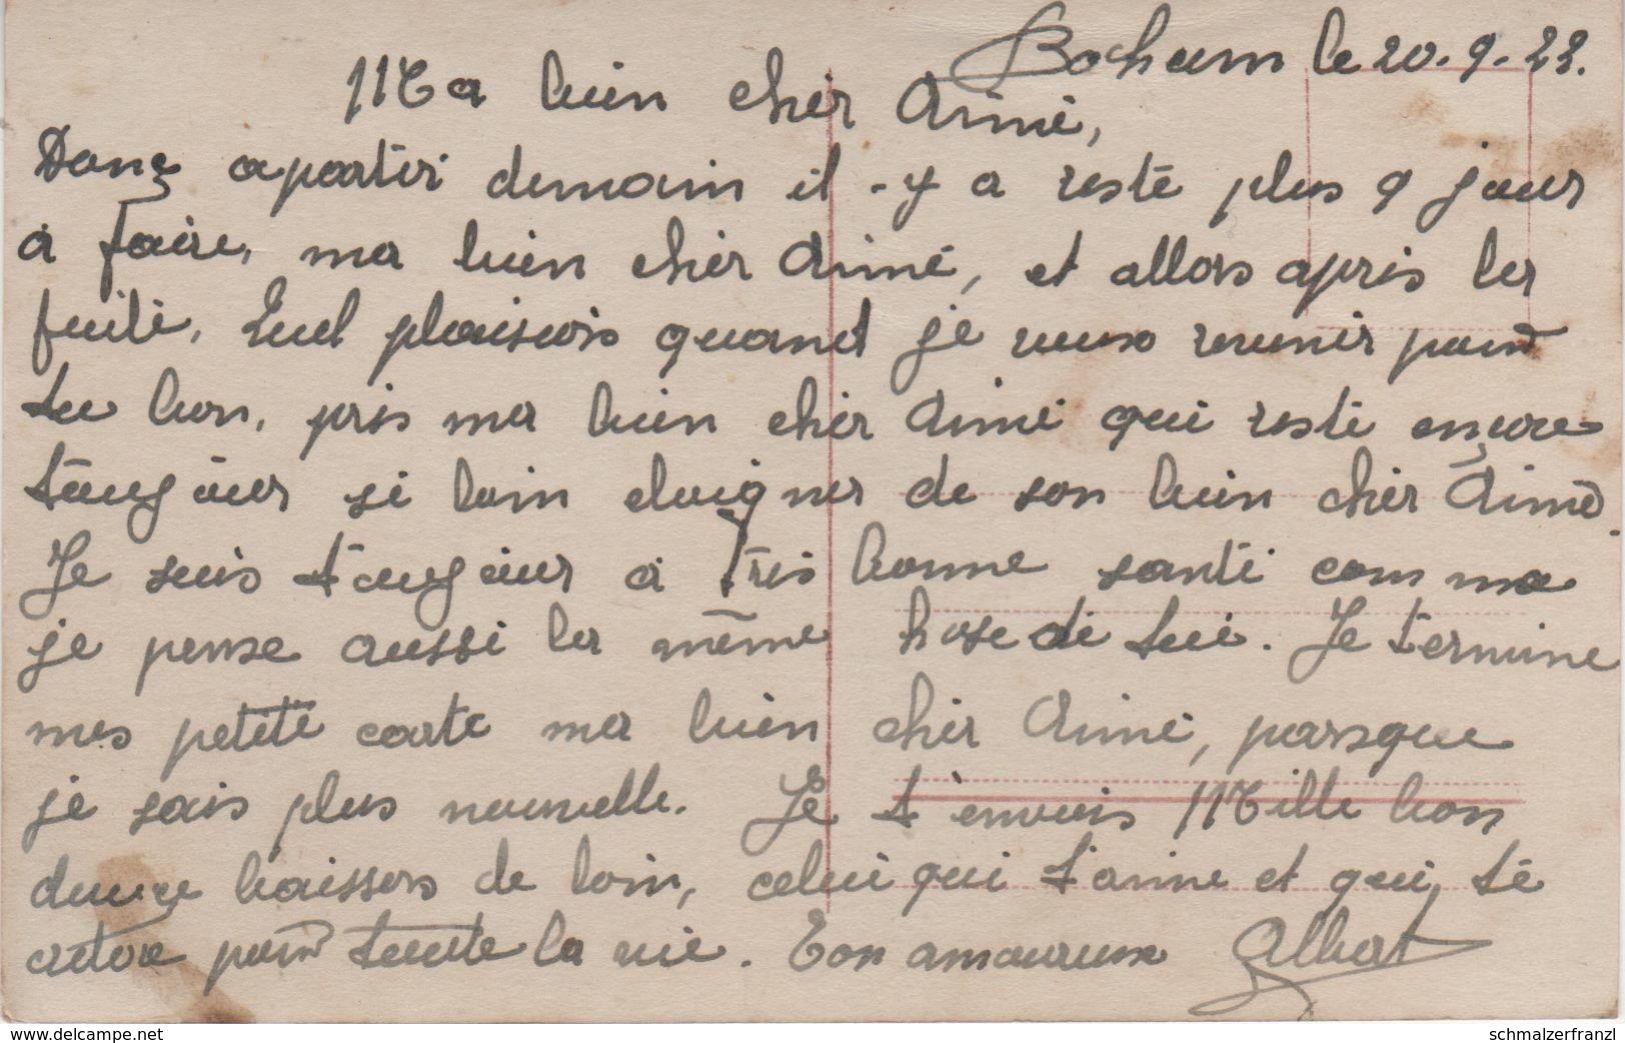 Bochum le 20-9-23.
Ma bien cher Aimé,
Donç apartir demain il-y a resté plus 9 jour
à faire, ma bien cher Aimé, et allors apris ler
fuité. Quel plaisuis quand je veux revenir pour
tu bon, pris ma bien cher Aimé qui resté ençore
toujöur si loin eloigner de son bien cher Aimé.
Je suis toujöur à tris bonne santé com ma
je pense aussi la même chose di tui. Je termine
mes petite carte ma bien cher Aimé, parsque
je sais plus nouvelle. Je t'envois Mille bon
douçe baissers de loin, celui qui t'aime et qui, té
adore pour toute la vie. Ton amoureux Albert
www.delcampe.net
schmalzerfranzl